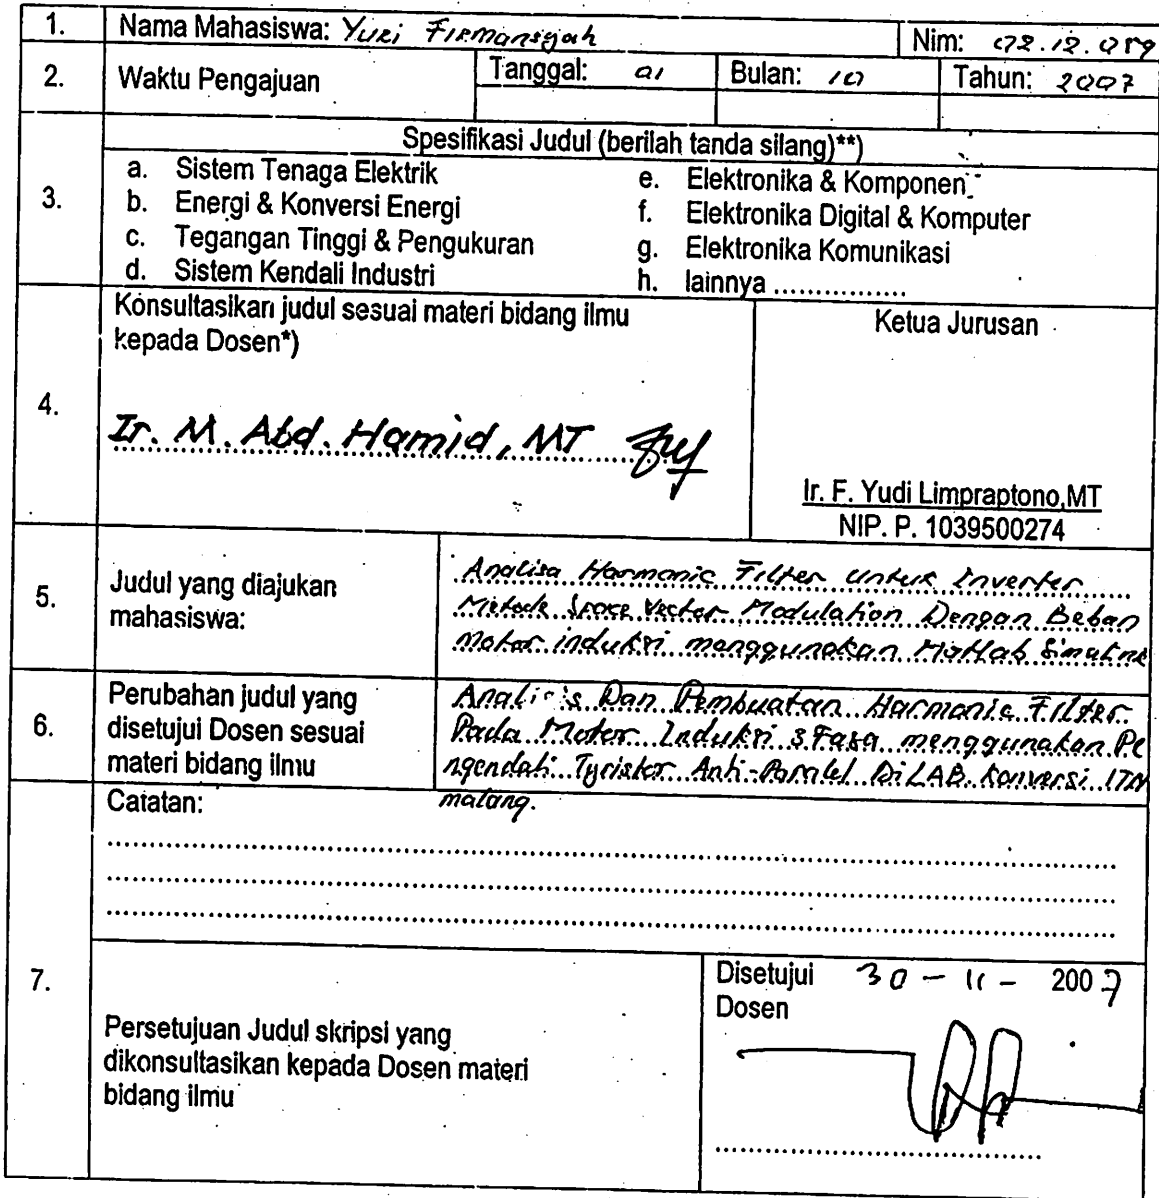 1. Nama Mahasiswa: Yuri Firmansyah Nim: 02.12.089
2. Waktu Pengajuan Tanggal: 01 Bulan: 10 Tahun: 2007
3. Spesifikasi Judul (berilah tanda silang)**)
a. Sistem Tenaga Elektrik
b. Energi & Konversi Energi
c. Tegangan Tinggi & Pengukuran
d. Sistem Kendali Industri
e. Elektronika & Komponen
f. Elektronika Digital & Komputer
g. Elektronika Komunikasi
h. lainnya ................
4. Konsultasikan judul sesuai materi bidang ilmu
kepada Dosen*)
Ir. M. Abd. Hamid, MT
Ketua Jurusan
Ir. F. Yudi Limpraptono,MT
NIP. P. 1039500274
5. Judul yang diajukan
mahasiswa:
Analisa Harmonic Filter untuk Inverter
Metode Space Vector Modulation Dengan Beban
Motor induksi menggunakan Matlab
6. Perubahan judul yang
disetujui Dosen sesuai
materi bidang ilmu
Analisis Dan Pembuatan Harmonic Filter
Pada Motor Induksi 3 Fasa menggunakan Pe
ngendali Tyristor Anti-Paralel Di LAB. Konversi ITN
malang.
7. Catatan:
Persetujuan Judul skripsi yang
dikonsultasikan kepada Dosen materi
bidang ilmu
Disetujui 30 - 11 - 2007
Dosen